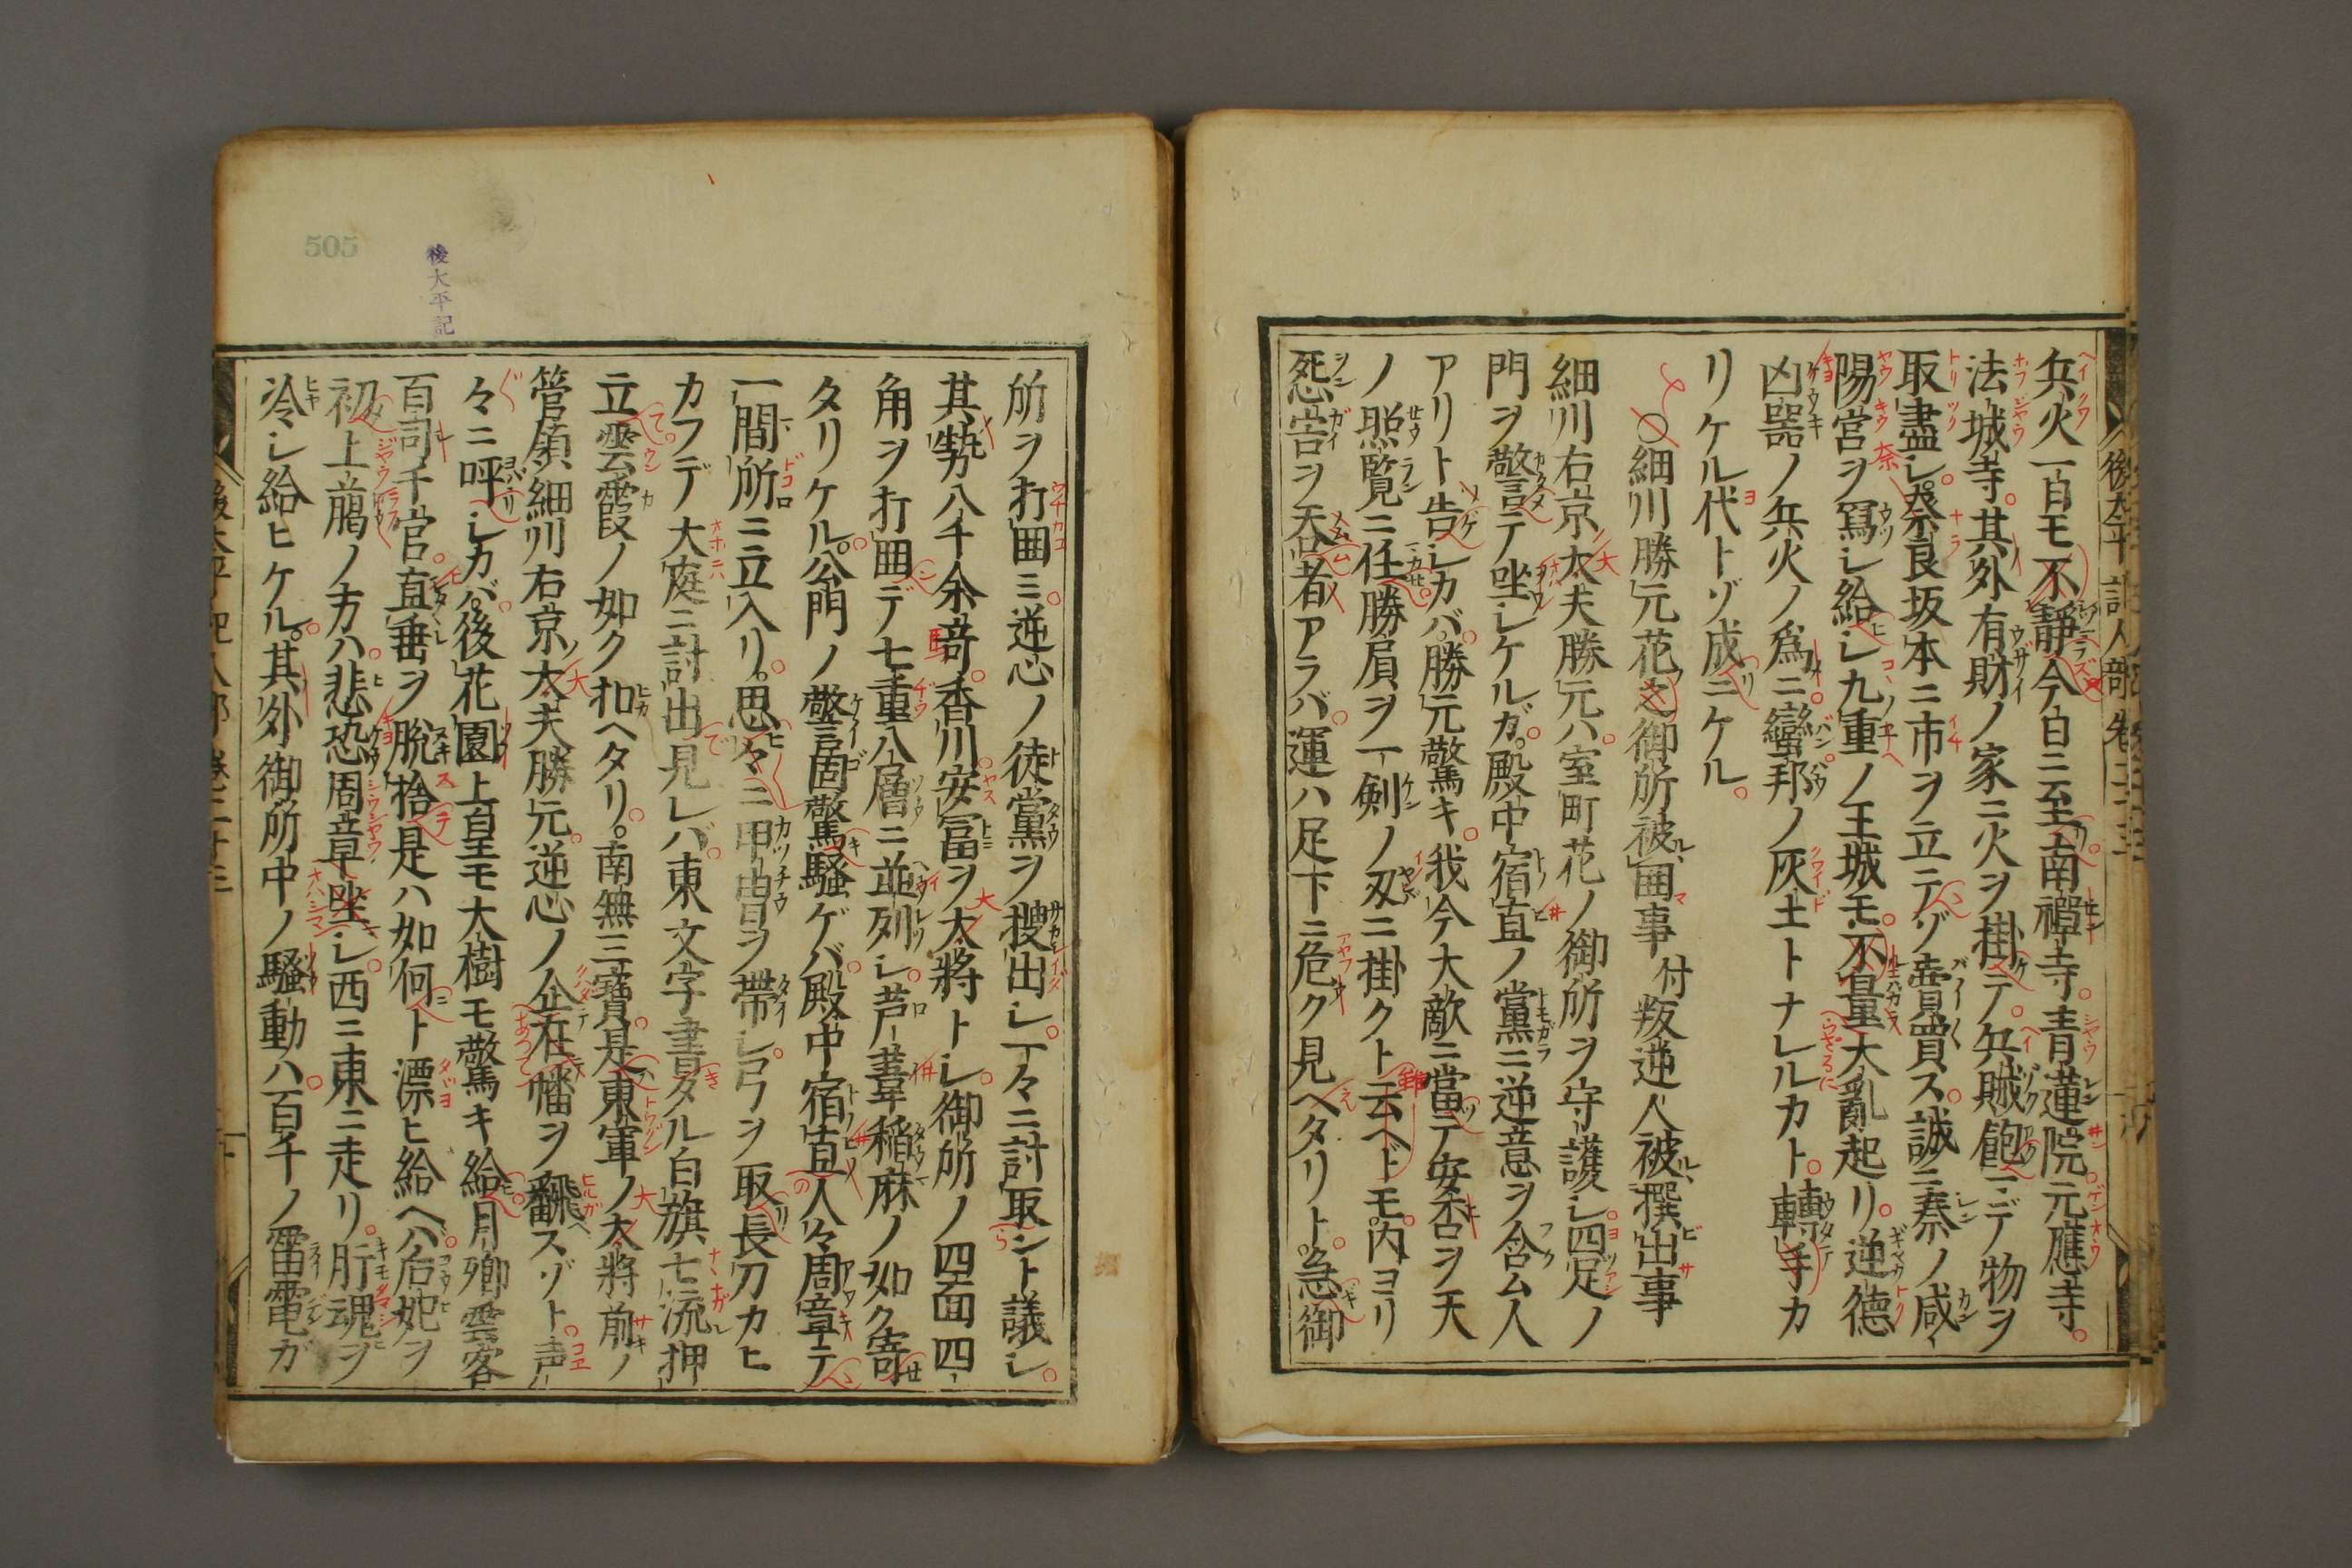 兵火一日モ不靜今日ニ至南禪寺青蓮院元應寺
法城寺其外有財ノ家ニ火ヲ掛テ兵賊飽マデ物ヲ
取盡シ奈良坂本ニ市ヲ立テゾ賣買ス誠ニ秦ノ咸
陽宮ヲ冩シ給シ九重ノ王城モ不量大亂起リ逆德
凶噐ノ兵火ノ爲ニ蠻邦ノ灰土トナレルカト轉手カ
リケル代トゾ成ニケル
○細川勝元花之御所被囲事 付 叛逆人被撰出事
細川右京太夫勝元ハ室町花ノ御所ヲ守護シ四足ノ
門ヲ警言テ坐シケルガ殿中宿直ノ黨ニ逆意ヲ含ム人
アリト告シカバ勝元驚キ我今大敵ニ當テ安否ヲ天
ノ照覧ニ任勝屓ヲ一剣ノ刄ニ掛クト云ヘドモ内ヨリ
死害ヲ呑者アラバ運ハ足下ニ危ク見ヘタリト急御
所ヲ打囲ミ逆心ノ徒黨ヲ捜出シ一々ニ討取ント議シ
其勢八千余竒香川安冨ヲ大將トシ御所ノ四面四
角ヲ打囲デ七重八層ニ並列シ芦葦稲麻ノ如ク寄
タリケル公門ノ警固驚騒ゲバ殿中宿直人々周章テ
一間所ニ立入リ思々ニ甲冑ヲ帶シ弓ヲ取長刀カヒ
カフデ大庭ニ討出見レバ東文字書タル白旗七流押
立雲霞ノ如ク扣ヘタリ南無三寶是東軍ノ大將前ノ
管領細川右京太夫勝元逆心ノ企在幡ヲ翻スゾト声
々ニ呼シカバ後花園上皇モ大樹モ驚キ給月卿雲客
百司千官直垂ヲ脱捨是ハ如何ト漂ヒ給ヘハ后妃ヲ
初上﨟ノ方ハ悲恐周章坐シ西ニ東ニ走リ肝魂ヲ
冷シ給ヒケル其外御所中ノ騒動ハ百千ノ雷電ガ
後太平記人部 巻二十三
505
後太平記